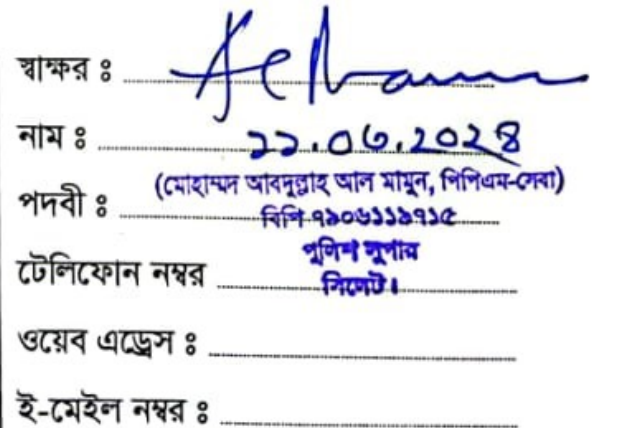 স্বাক্ষর ঃ
নাম ঃ ২২.০৬.২০২৪
(মোহাম্মদ আবদুল্লাহ আল মামুন, পিপিএম-সেবা)
পদবী ঃ
বিপি ৭৯০৬১১১৭১৫
পুলিশ সুপার
টেলিফোন নম্বর
সিলেট।
ওয়েব এড্রেস ঃ
ই-মেইল নম্বর ঃ